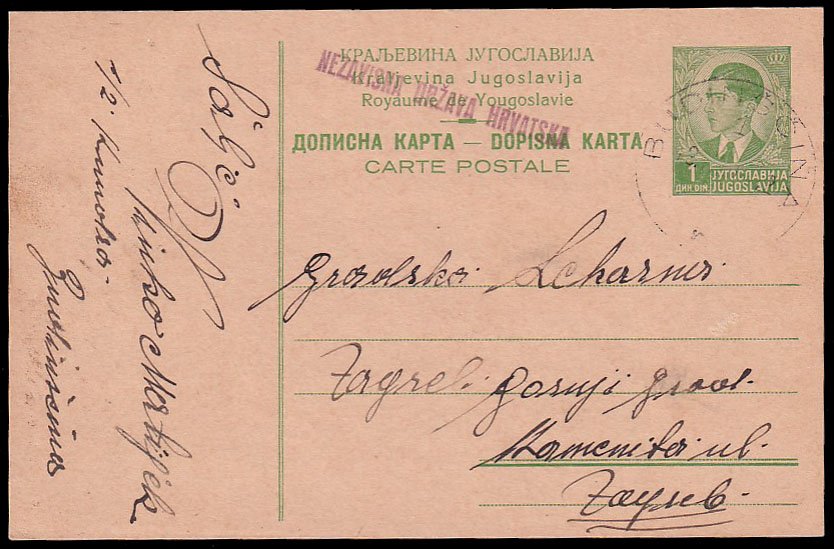 КРАЉЕВИНА ЈУГОСЛАВИЈА
Kraljevina Jugoslavija
Royaume de Yougoslavie
NEZAVISNA DRŽAVA HRVATSKA
ДОПИСНА КАРТА — DOPISNA KARTA
CARTE POSTALE
1
ДИН. DIN.
ЈУГОСЛАВИЈА
JUGOSLAVIJA
Gradska Lekarna
Zagreb. Gornji Grad.
Kamenita ul.
Zagreb.
Šalje
Vinko